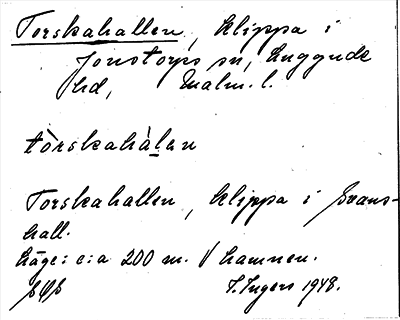 Torskahallen, klippa i
Jonstorps sn, Luggude
hd, Malm. l.
tòrskahàlan
Torskahallen, klippa i Svans-
hall.
Läge: c:a 200 m. / hamnen.
I. Ingers 1948.